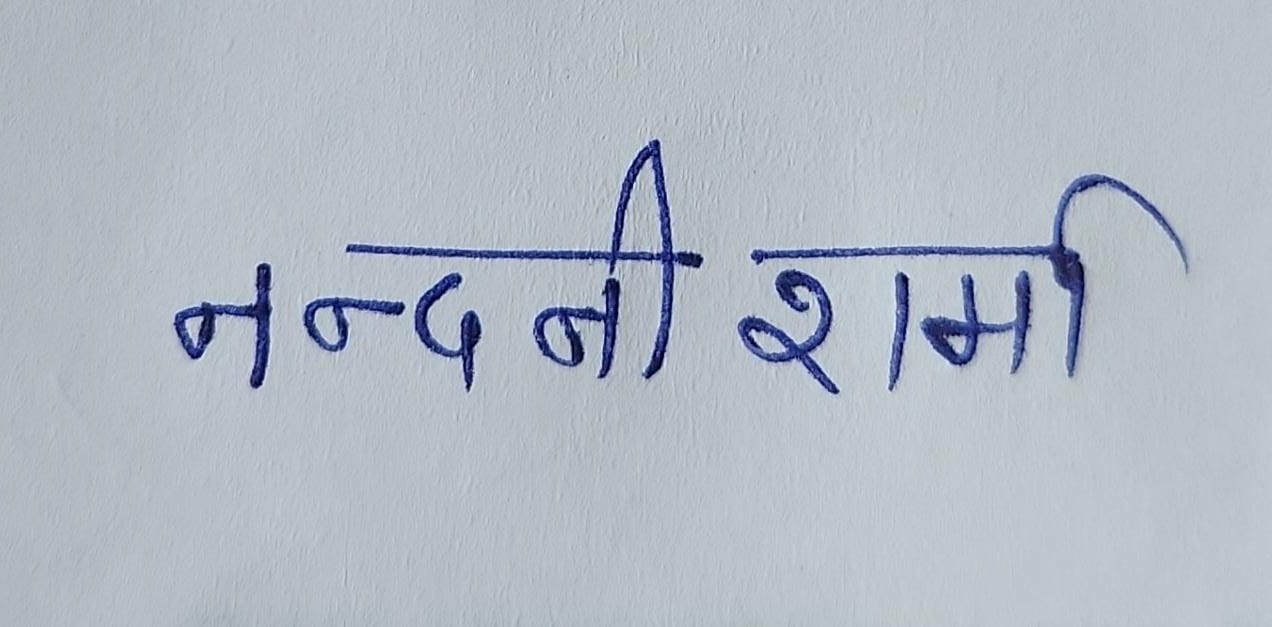 नन्दनी शर्मा